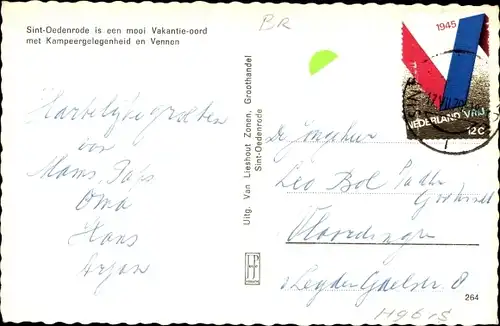 Sint-Oedenrode is een mooi Vakantie-oord
met Kampeergelegenheid en Vennen
BR
1945
NEDERLAND VRIJ
12C
Hartelijke groeten
van
Mams, Paps
Oma
Hans
Arjan
Uitg. Van Lieshout Zonen, Groothandel
Sint-Oedenrode
De Jongeheer
Leo Bol
Vlaardingen
264